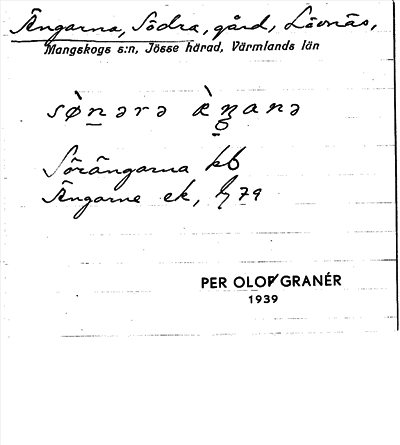 Ängarna, Södra, gård, Lövnäs,
Mangskogs s:n, Jösse härad, Värmlands län
Sörängarna kb
Ängarne ek, 79
PER OLOF GRANÉR
1939